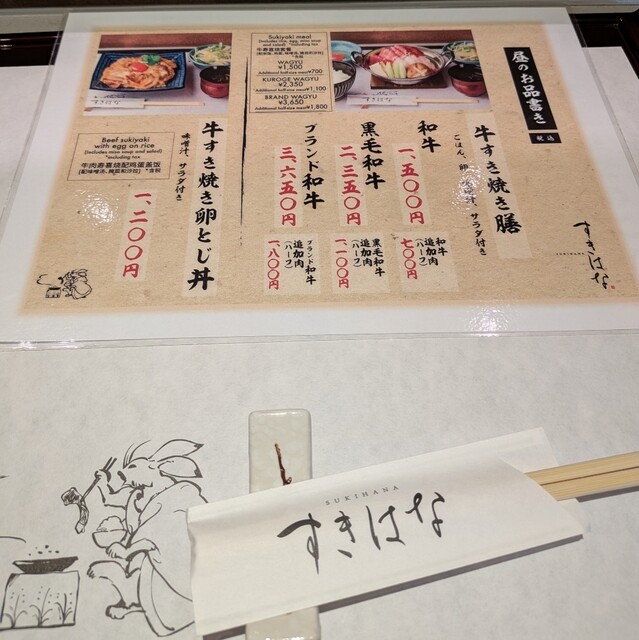 昼のお品書き
税込
すきはな
SUKIHANA
牛すき焼き膳
ごはん、卵、味噌汁、サラダ付き
和牛
一、五〇〇円
和牛
追加肉
(ハーフ)
七〇〇円
黒毛和牛
二、三五〇円
黒毛和牛
追加肉
(ハーフ)
一、一〇〇円
ブランド和牛
三、六五〇円
ブランド和牛
追加肉
(ハーフ)
一、八〇〇円
Sukiyaki meal
(Includes rice, egg, miso soup
and salad) *including tax
牛寿喜烧套餐
WAGYU
¥1,500
Additional half-size meat¥700
KUROGE WAGYU
¥2,350
Additional half-size meat¥1,100
BRAND WAGYU
¥3,650
Additional half-size meat¥1,800
牛すき焼き卵とじ丼
味噌汁、サラダ付き
一、二〇〇円
Beef sukiyaki
with egg on rice
(Includes miso soup and salad)
*including tax
牛肉寿喜烧配鸡蛋盖饭
すきはな
すきはな
SUKIHANA
すきはな